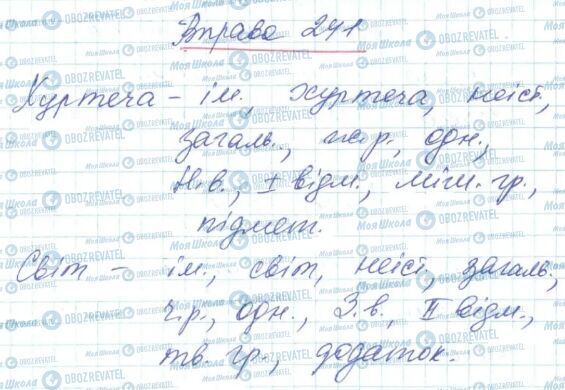 Вправа 241
Хуртеча - ім., хуртеча, неіст.,
загаль., ж.р., одн.,
Н.в., I відм., міш. гр.,
підмет.
Світ - ім., світ, неіст., загаль.,
ч.р., одн., З.в., II відм.,
тв. гр., додаток.